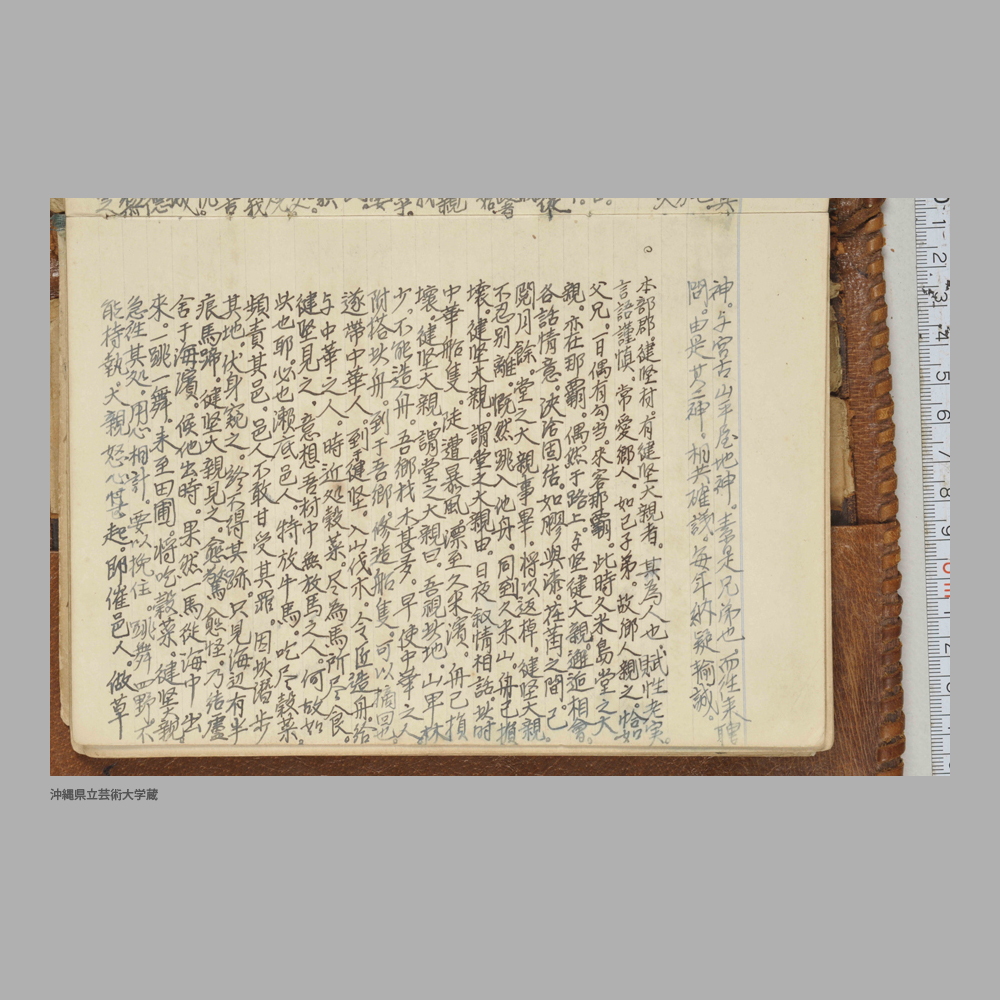 神。与宮古山平屋地神。素是兄弟也。而往来聘
問。由是其二神。相共確議。毎年納疑輸誠。
。本部郡。健堅村。有健堅大親者。其為人也。賦性老実。
言語謹慎。常愛郷人。如己子弟。故郷人親之。恰如
父兄。一日偶有勾当。来客那覇。此時久米島堂之大
親。亦在那覇。偶然于路上。与堅健大親。邂逅相會。
各話情意。決洽固結。如膠與漆。荏苒之間。已
閲月餘。堂之大親事畢。将以返棹。健堅大親
不忍別離。慨然跳入他舟。同到久米山。舟已損
壊。健堅大親。謂堂之大親由。日夜叙情相話。此時
中華船隻。徒遭暴風。漂至久米濱。舟已損
壊。健堅大親。謂堂之大親曰。吾視此地。山甲林
少。不能造舟。吾郷材木甚多。早使中華之人
附搭此舟。到于吾郷。修造船隻。可以摘回也。
遂帯中華人。到于健堅。入山伐木。令匠造舟。給
与中華之人。時近処穀菜。尽為馬所尽食。
健堅見之。意想吾村中無放馬之人。何故如
此也耶。必也瀬底邑人。特放牛馬。吃尽穀菜。
頻責其邑。邑人不敢甘受其罪。因此潜歩
其地。伏身窺之。終不得其跡。只見海辺有半
痕馬蹄。健堅大親見之。愈驚愈怪。乃結廬
舎于海濱。候他出時。果然一馬従海中出
来。跳舞。未至田圃。将吃穀菜。健堅大親
急往其処。用心相計。要以挽住。跳舞四野。不
能持執。大親怒心甚起。即催邑人。做草
沖縄県立芸術大学蔵